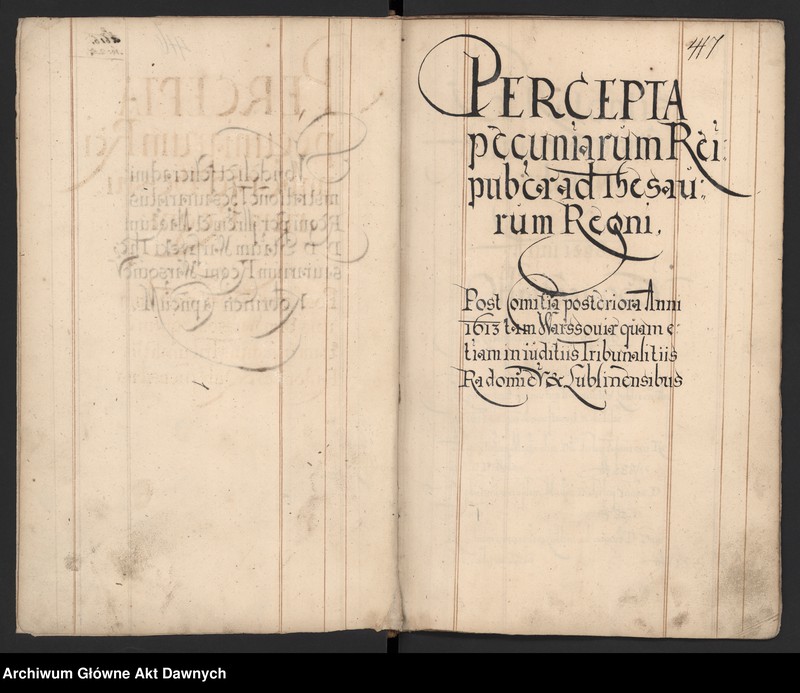 417
PERCEPTA
pecuniarum Rei:
pub: ad Thesau:
rum Regni.
Post Comitia posteriora Anni
1613 tam Warssoviæ quam e:
tiam in iuditiis Tribunalitiis
Radomien & Lublinensibus
Archiwum Główne Akt Dawnych